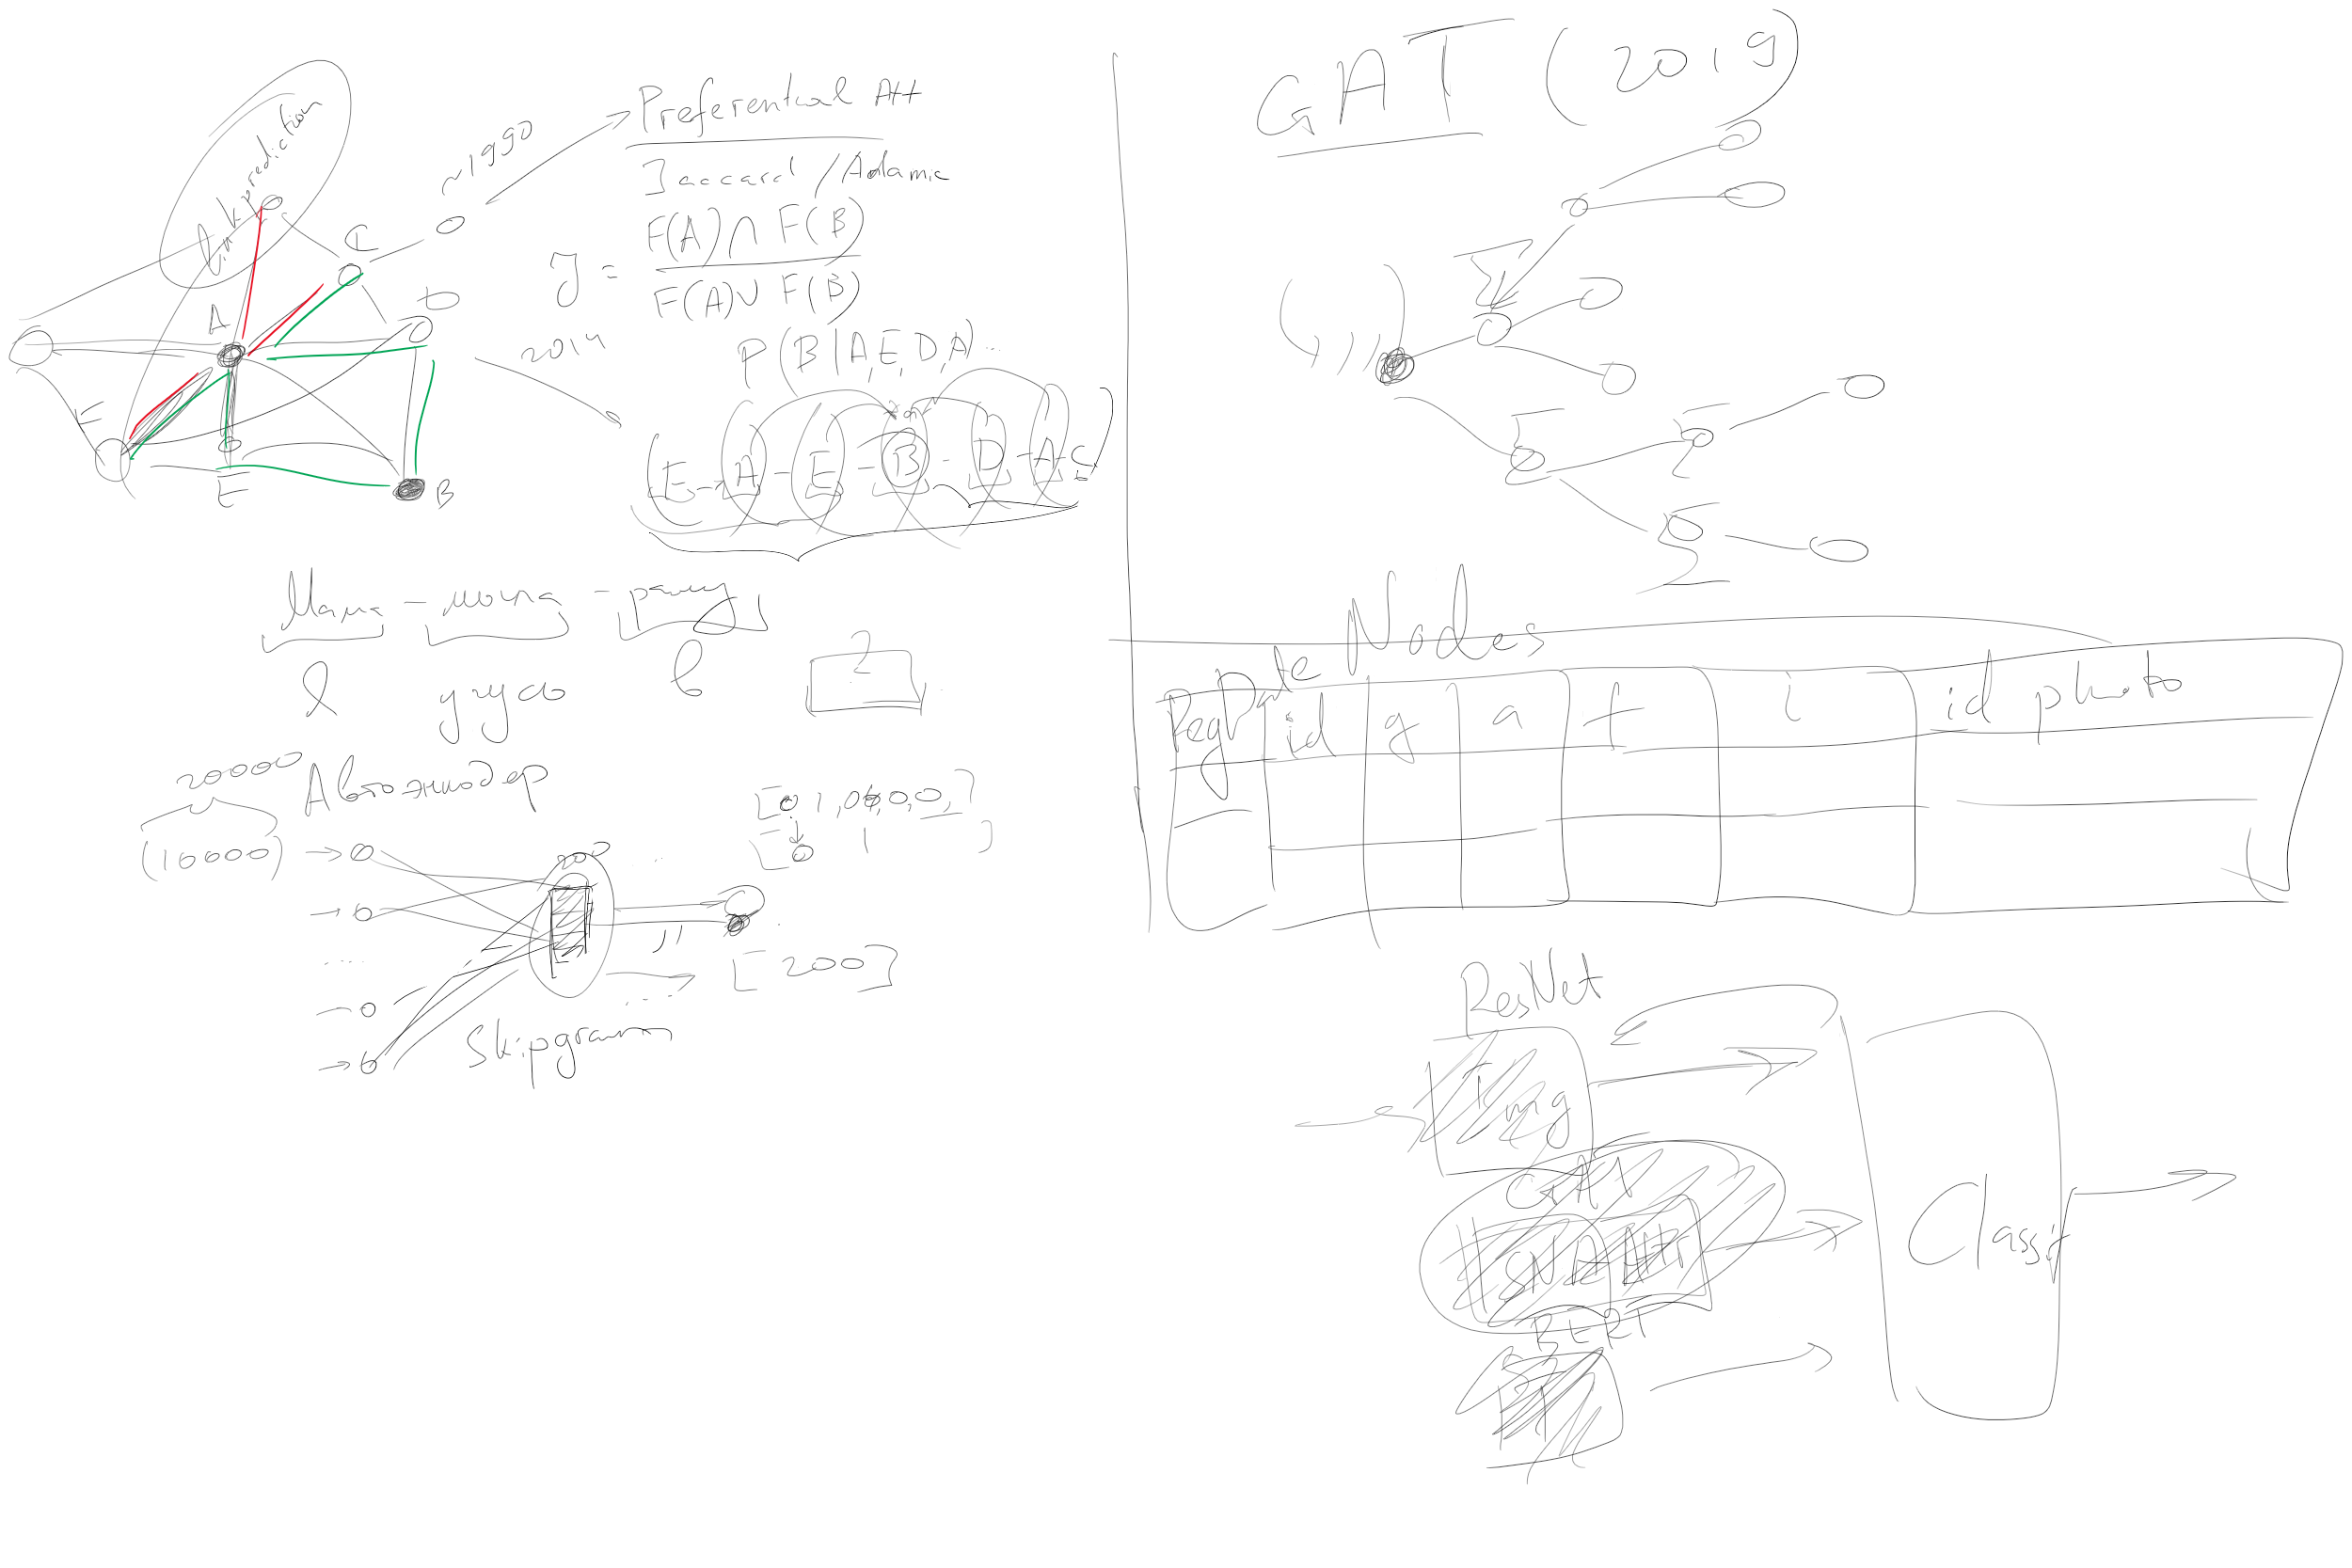 link prediction
~1990
Preferential Att
Jaccard / Adamic
J = F(A) ∩ F(B)
F(A) ∪ F(B)
C
D
A
E
E
B
2014
P(B|A,E,D,A)...
E → A - E - B - D - A - C
Мама - мыла - раму
Я учусь в ?
20000
Автоэнкодер
(10000)
200
[200]
Skipgram
GAT (2019)
Σ
Nodes
RegDate id g a f i id photo
ResNet
Img
GAT
SNA Attr
BERT
Classif